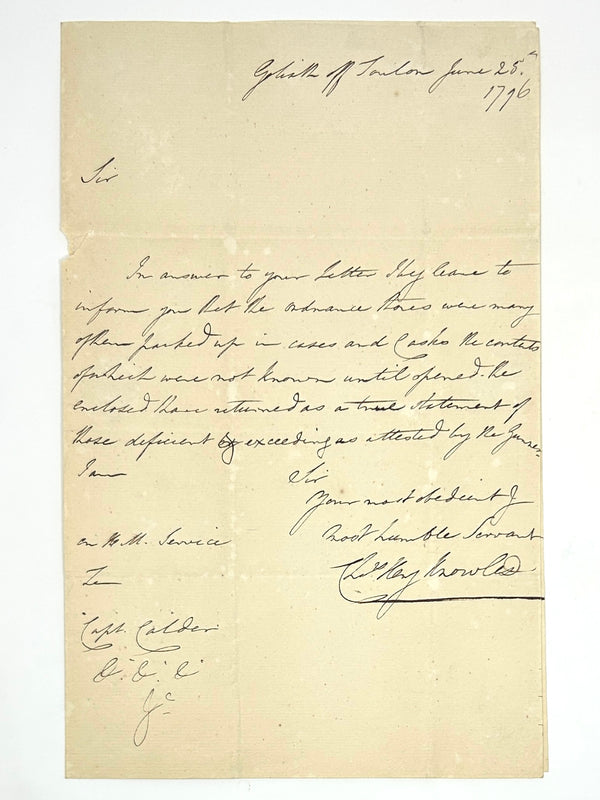 Goliath off Toulon June 25.th
1796
Sir
In answer to your Letter I beg leave to
inform you that the ordnance Stores were many
of them packed up in cases and Casks the contents
of which were not known until opened. the
enclosed I have returned as a true Statement of
those deficient & exceeding as attested by the Gunner
I am
Sir
Your most obedient &
most humble Servant
Chas Hery Knowles
on H.M. Service
To
Capt. Calder
&. &. &.
&c